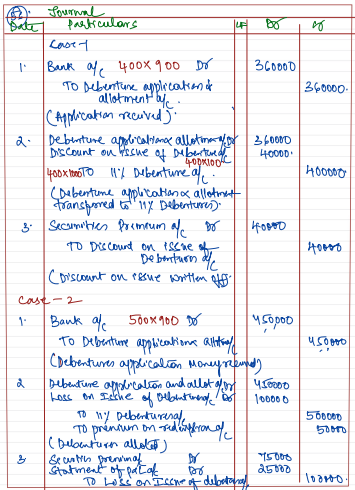 52. Journal
Date Particulars LF Dr Cr
Case-1
1. Bank a/c 400X900 Dr 360000
To Debenture application &
allotment a/c. 360000.
(Application received).
2. Debenture application & allotment a/c Dr 360000
Discount on issue of Debentures a/c 40000.
400X100
400X1000 To 11% Debenture a/c. 400000
(Debenture application & allotment
transferred to 11% Debentures).
3. Securities Premium a/c Dr 40000
To Discount on issue of
Debenture a/c 40000
(Discount on issue written off).
Case - 2
1. Bank a/c 500X900 Dr 450,000
To Debenture applications allot a/c 450000
(Debentures application Money received)
2 Debenture application and allot a/c Dr 450000
Loss on Issue of Debenture a/c Dr 100000
To 11% Debentures a/c 500000
To premium on redemption a/c 50000
(Debentures alloted)
3. Securities premium a/c 75000
Statment of pal a/c Dr 25000
To Loss on Issue of debenture 100000.